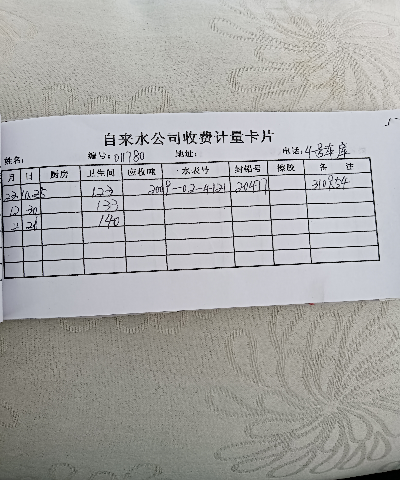 自来水公司收费计量卡片
姓名: 编号: 011780 地址: 电话: 4-号车库
月 日 厨房 卫生间 应收吨 水表号 封铅号 接收 备注
22 10.25 123 2009--0.2-4-1.21 20477 310854
12 30 133
2 26 140